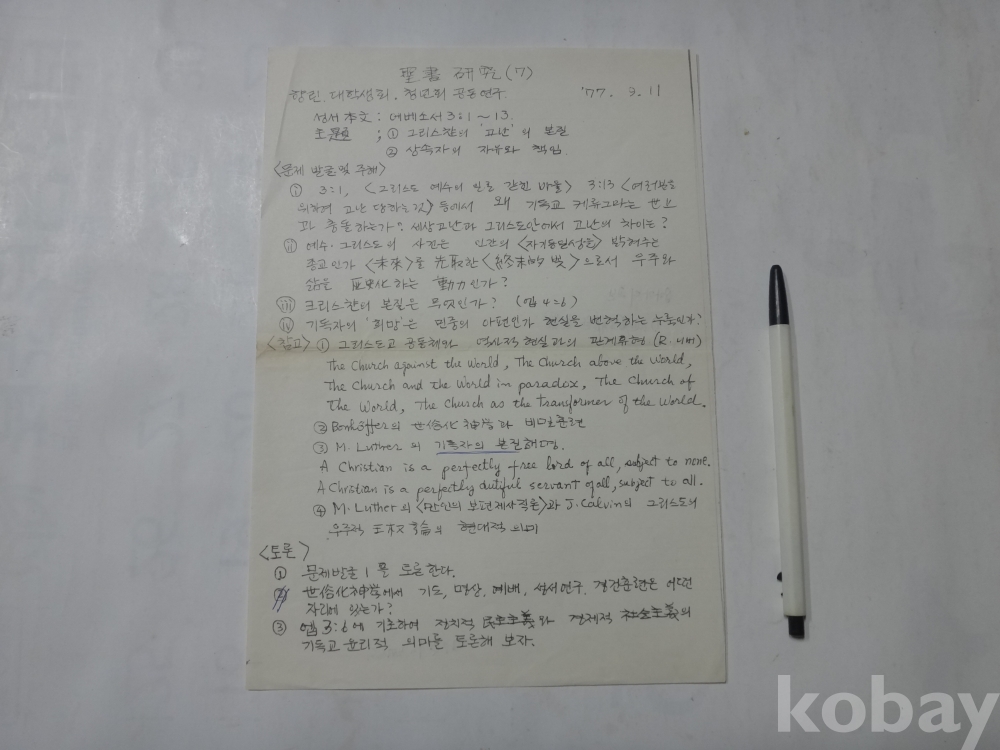 聖書 研究 (7)
향린. 대학생회. 청년회 공동연구. '77. 9. 11
성서 本文 : 에베소서 3:1 ~ 13.
主題 ; ① 그리스챤의 '고난'의 본질
② 상속자의 자유와 책임
<문제 발굴 및 주해>
ⅰ 3:1, <그리스도 예수의 일로 갇힌 바울> 3:13 <여러분을
위하여 고난 당하는것> 등에서 왜 기독교 케류그마는 世上
과 충돌하는가? 세상고난과 그리스도안에서 고난의 차이는?
ⅱ 예수·그리스도의 사건은 인간의 밝혀주는
종교인가 <未來>를 先取한 <終末的 빛>으로서 우주와
삶을 歷史化 하는 動力인가?
ⅲ 크리스챤의 본질은 무엇인가? (엡 4:6)
ⅳ 기독자의 '희망'은 민중의 아편인가 현실을 변혁하는 누룩인가?
<참고> ① 그리스도교 공동체와 역사적 현실과의 관계유형 (R. 니버)
The Church against the World, The Church above the World,
The Church and the World in paradox, The Church of
the World, The Church as the transformer of the World.
② Bonhöffer의 世俗化 神学과 비밀훈련
③ M. Luther의 기독자의 본질해명.
A Christian is a perfectly free lord of all, subject to none.
A Christian is a perfectly dutiful servant of all, subject to all.
④ M. Luther의 <만인의 보편제사직론>과 J. Calvin의 그리스도의
우주적 王权 論의 현대적 의미
<토론>
① 문제발굴 1 를 토론한다.
② 世俗化 神学에서 기도, 명상, 예배, 성서연구. 경건훈련은 어떤
자리에 있는가?
③ 엡 3:6에 기초하여 정치적 民主主義와 경제적 社会主義의
기독교 윤리적 의미를 토론해 보자.
kobay